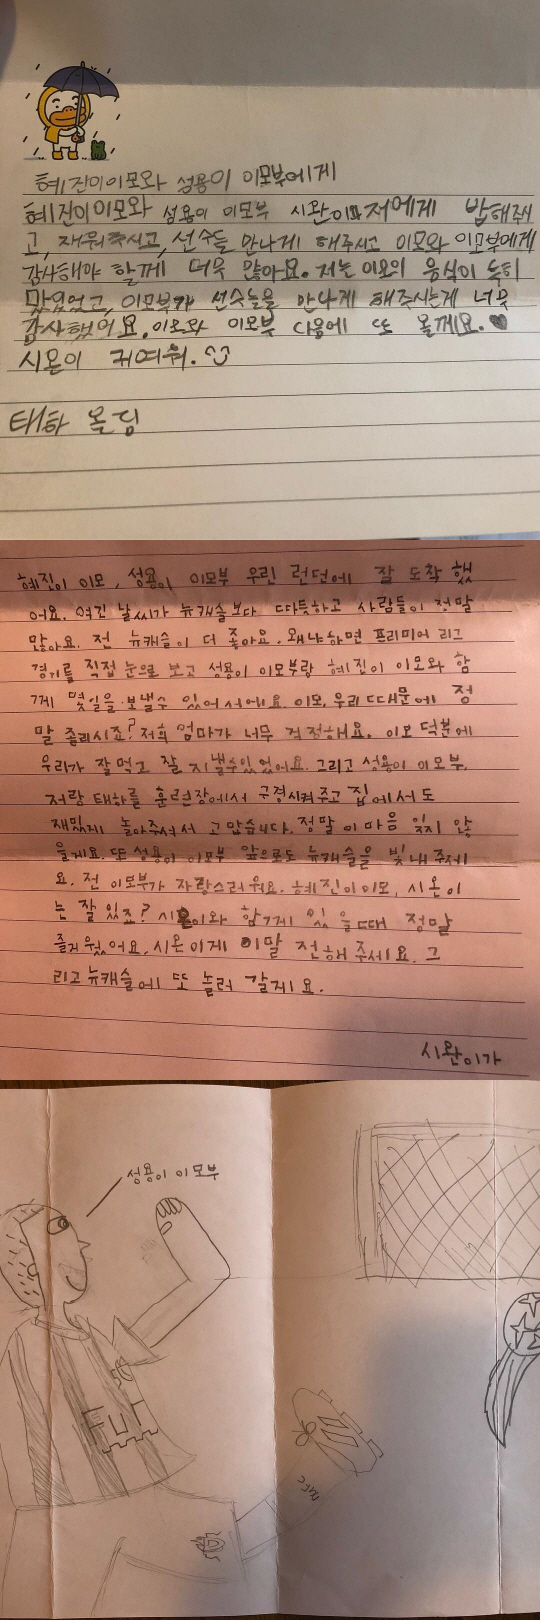 혜진이이모와 성용이 이모부에게
혜진이이모와 성용이 이모부 시완이와저에게 밥해줘
고, 재워주시고, 선수들 만나게 해주시고 이모와 이모부에게
감사해야 할께 더욱 많아요. 저는 이모의 음식이 특히
맛있었고, 이모부가 선수들을 만나게 해주시는게 너무
감사했어요. 이모와 이모부 다음에 또 올께요.♥
시온이 귀여워.
태하 올딤
혜진이 이모, 성용이 이모부 우린 런던에 잘 도착 했
어요. 여긴 날씨가 뉴캐슬보다 따듯하고 사람들이 정말
많아요. 전 뉴캐슬이 더 좋아요. 왜냐하면 프리미어 리그
경기를 직접 눈으로 보고 성용이 이모부랑 혜진이 이모와 함
께 몇일을 보낼수 있어서에요. 이모, 우리 때문에 정
말 졸리시죠? 저희 엄마가 너무 걱정해요. 이모 덕분에
우리가 잘먹고 잘 지낼수있었어요. 그리고 성용이 이모부,
저랑 태하를 훈련장에서 구경시켜주고 집에서도
재밌게 놀아주셔서 고맙습니다. 정말 이 마음 잊지 않
을게요. 또 성용이 이모부 앞으로도 뉴캐슬을 빛내 주세
요. 전 이모부가 자랑스러워요. 혜진이이모, 시온이
는 잘 있죠? 시온이와 함께 있을때 정말
즐거웠어요. 시온이게 이말 전해 주세요. 그
리고 뉴캐슬에 또 놀러 갈게요.
시완이가
성용이 이모부
FUN
NUFC